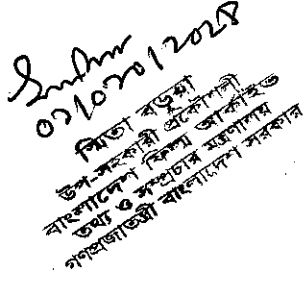 ০১/০১০/২০২৪
স্মিতা বড়ুয়া
উপ-সহকারী প্রকৌশলী
বাংলাদেশ ফিল্ম আর্কাইভ
তথ্য ও সম্প্রচার মন্ত্রণালয়
গণপ্রজাতন্ত্রী বাংলাদেশ সরকার